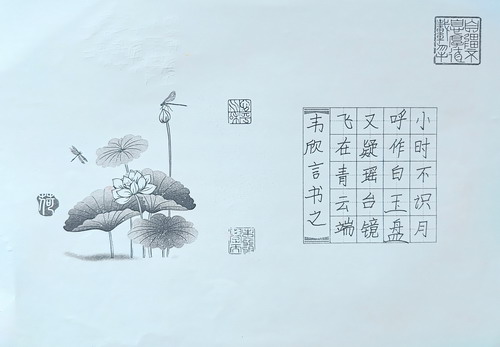 小时不识月
呼作白王盘
又疑瑶台镜
飞在青云端
韦欣言书之
荷